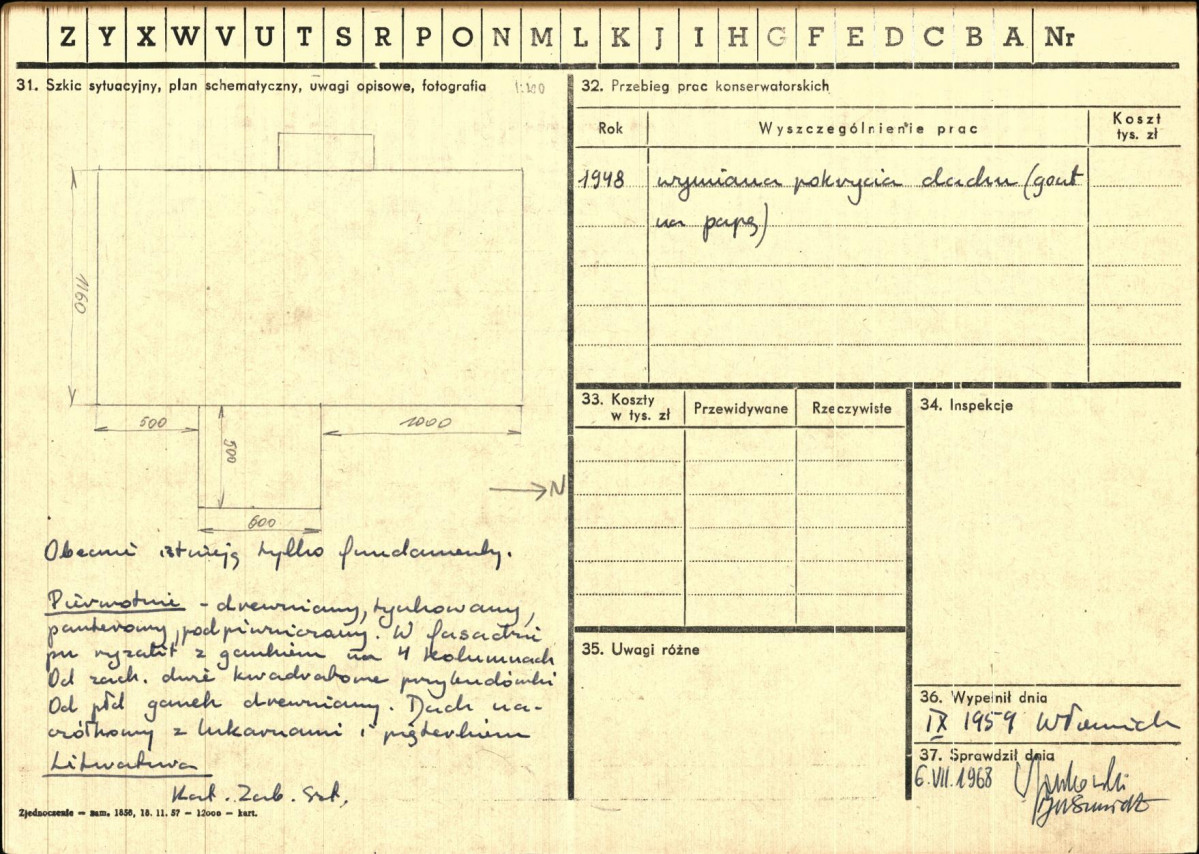 Z Y X W V U T S R P O N M L K J I H G F E D C B A Nr
31. Szkic sytuacyjny, plan schematyczny, uwagi opisowe, fotografia 1:100
1160
500
500
1000
600
N
Obecnie istnieją tylko fundamenty.
Pierwotnie - drewniany, tynkowany,
parterowy, podpiwniczony. W fasadzie
ryzalit z gankiem na 4 kolumnach
Od zach. dwie kwadratowe przybudówki
Od płd ganek drewniany. Dach na-
czółkowy z lukarnami i pięterkiem
Literatura
Kat. Zab. Szt.
Zjednoczenie — zam. 1858, 18. 11. 57 — 12000 — kart.
32. Przebieg prac konserwatorskich
Rok Wyszczególnienie prac Koszt tys. zł
1948 wymiana pokrycia dachu (gont
na papę)
33. Koszty w tys. zł Przewidywane Rzeczywiste
34. Inspekcje
35. Uwagi różne
36. Wypełnił dnia
IX 1959
37. Sprawdził dnia
6.VII.1968